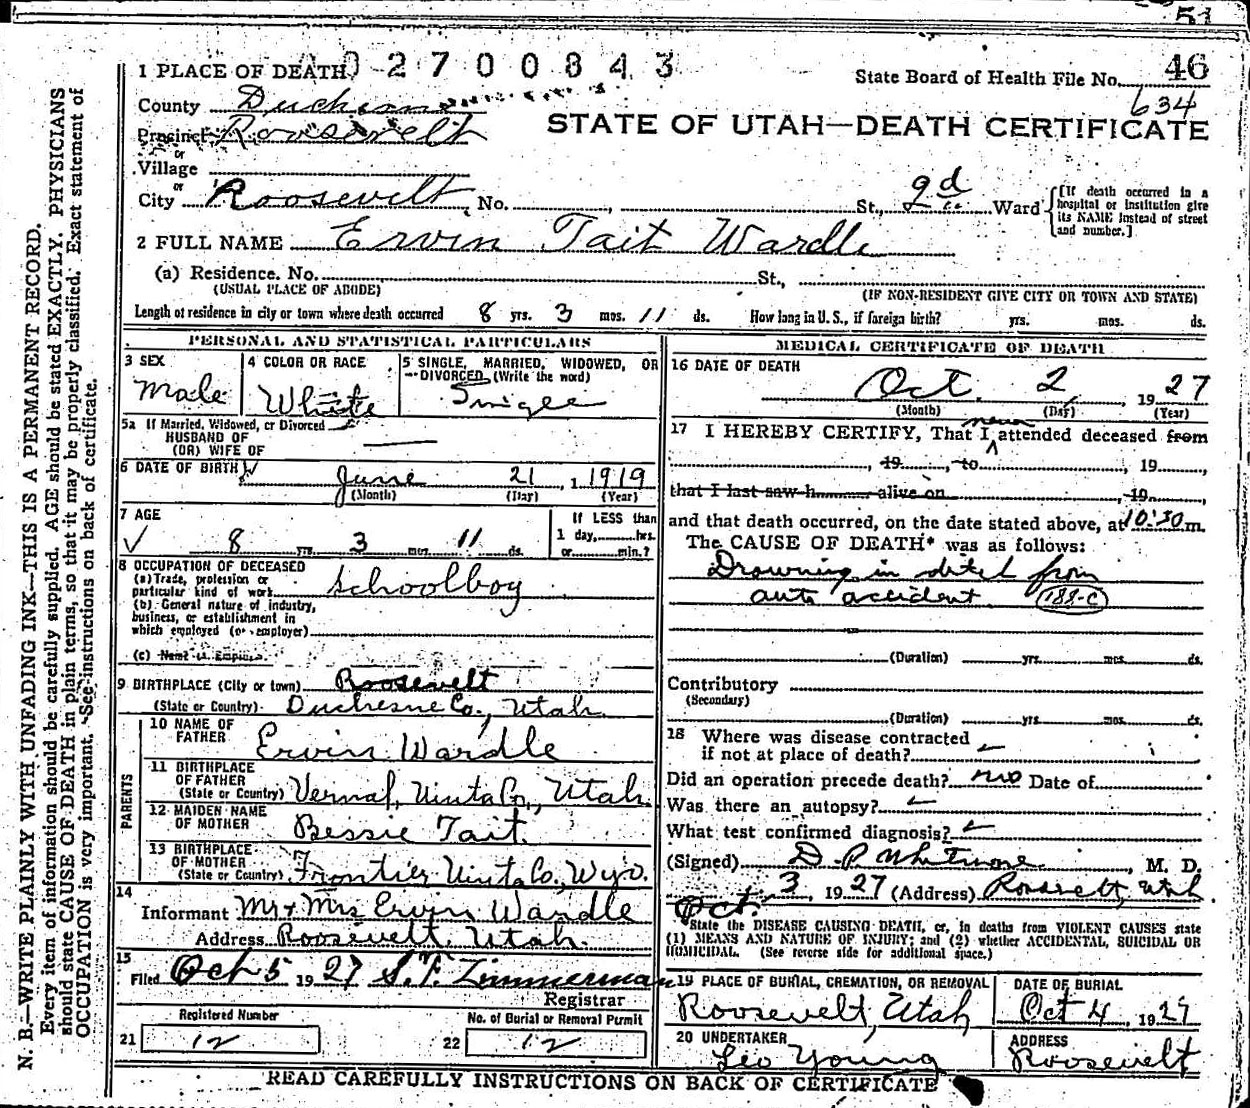 51
1 PLACE OF DEATH 02700843
State Board of Health File No. 46
634
County Duchesne
STATE OF UTAH—DEATH CERTIFICATE
Precinct Roosevelt
or
Village
or
City Roosevelt, No. , St., 2d Ward
[If death occurred in a hospital or institution give its NAME instead of street and number.]
2 FULL NAME Ervin Tait Wardle
(a) Residence. No. St.,
(USUAL PLACE OF ABODE) (IF NON-RESIDENT GIVE CITY OR TOWN AND STATE)
Length of residence in city or town where death occurred 8 yrs. 3 mos. 11 ds. How long in U. S., if foreign birth? yrs. mos. ds.
PERSONAL AND STATISTICAL PARTICULARS
3 SEX
Male
4 COLOR OR RACE
White
5 SINGLE, MARRIED, WIDOWED, OR
DIVORCED (Write the word)
Single
5a If Married, Widowed, or Divorced
HUSBAND OF
(OR) WIFE OF
6 DATE OF BIRTH June 21, 1919
(Month) (Day) (Year)
7 AGE
8 yrs. 3 mos. 11 ds.
If LESS than
1 day, hrs.
or min.?
8 OCCUPATION OF DECEASED
(a) Trade, profession or
particular kind of work Schoolboy
(b) General nature of industry,
business, or establishment in
which employed (or employer)
(c) Name of Employer
9 BIRTHPLACE (City or town) Roosevelt
(State or Country) Duchesne Co., Utah
PARENTS
10 NAME OF
FATHER Ervin Wardle
11 BIRTHPLACE
OF FATHER
(State or Country) Vernal, Uinta Co., Utah
12 MAIDEN NAME
OF MOTHER Bessie Tait
13 BIRTHPLACE
OF MOTHER
(State or Country) Frontier Uinta Co., Wyo.
14
Informant Mr + Mrs Ervin Wardle
Address Roosevelt, Utah.
15
Filed Oct 5 1927 S. F. Zimmerman
Registrar
Registered Number
21 12
No. of Burial or Removal Permit
22 12
MEDICAL CERTIFICATE OF DEATH
16 DATE OF DEATH
Oct. 2 1927
(Month) (Day) (Year)
never
17 I HEREBY CERTIFY, That I attended deceased from
, 19 , to , 19 ,
that I last saw h alive on , 19 ,
and that death occurred, on the date stated above, at 10:30 m.
The CAUSE OF DEATH* was as follows:
Drowning in ditch from
auto accident 188-C
(Duration) yrs. mos. ds.
Contributory
(Secondary)
(Duration) yrs. mos. ds.
18 Where was disease contracted
if not at place of death?
Did an operation precede death? no Date of
Was there an autopsy?
What test confirmed diagnosis?
(Signed) D. P. Whitmore, M. D.
Oct. 3, 1927 (Address) Roosevelt, Utah
*State the DISEASE CAUSING DEATH, or, in deaths from VIOLENT CAUSES state
(1) MEANS AND NATURE OF INJURY; and (2) whether ACCIDENTAL, SUICIDAL OR
HOMICIDAL. (See reverse side for additional space.)
19 PLACE OF BURIAL, CREMATION, OR REMOVAL
Roosevelt, Utah
DATE OF BURIAL
Oct 4, 1927
20 UNDERTAKER
Leo Young
ADDRESS
Roosevelt
READ CAREFULLY INSTRUCTIONS ON BACK OF CERTIFICATE
N. B.—WRITE PLAINLY WITH UNFADING INK—THIS IS A PERMANENT RECORD.
Every item of information should be carefully supplied. AGE should be stated EXACTLY. PHYSICIANS
should state CAUSE OF DEATH in plain terms, so that it may be properly classified. Exact statement of
OCCUPATION is very important. See instructions on back of certificate.